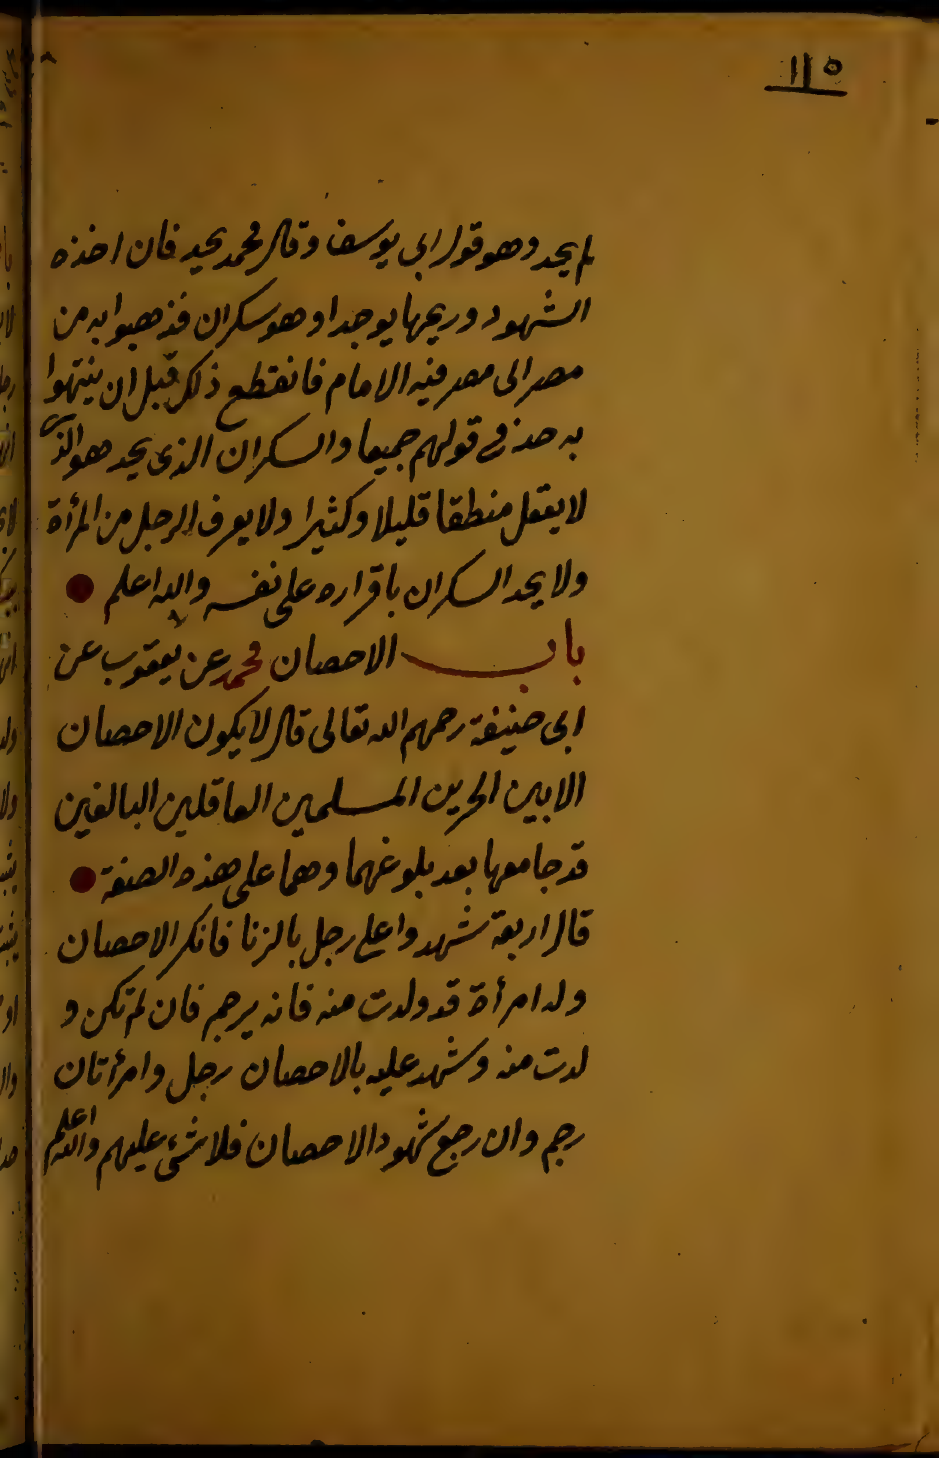 ١١٥
لم يحد وهو قول ابي يوسف وقال محمد يحد فان اخذه
الشهود وريحها يوجد او هو سكران فذهبوا به من
مصر الى مصر فيه الامام فانقطع ذلك قبل ان ينتهوا
به حد في قولهم جميعا والسكران الذي يحد هو الذي
لا يعقل منطقا قليلا وكثيرا ولا يعرف الرجل من المرأة
ولا يحد السكران باقراره على نفسه والله اعلم
باب الاحصان محمد عن يعقوب عن
ابى حنيفة رحمهم الله تعالى قال لا يكون الاحصان
الا بين الحرين المسلمين العاقلين البالغين
قد جامعها بعد بلوغهما وهما على هذه الصفة
قال اربعة شهدوا على رجل بالزنا فانكر الاحصان
وله امرأة قد ولدت منه فانه يرجم فان لم تكن و
لدت منه وشهد عليه بالاحصان رجل وامرأتان
رجم وان رجع شهود الاحصان فلا شئ عليهم والله اعلم